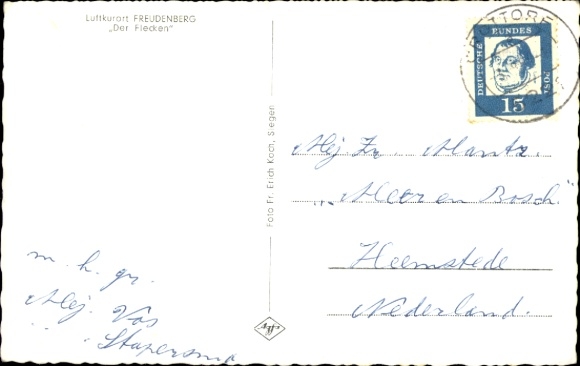 Luftkurort FREUDENBERG
„Der Flecken"
DEUTSCHE BUNDESPOST
15
Foto Fr. Erich Koch, Siegen
Mej. Fr. Mantz.
„Meer en Bosch"
Heemstede
Nederland.
m. h. gr.
Mej. Vos